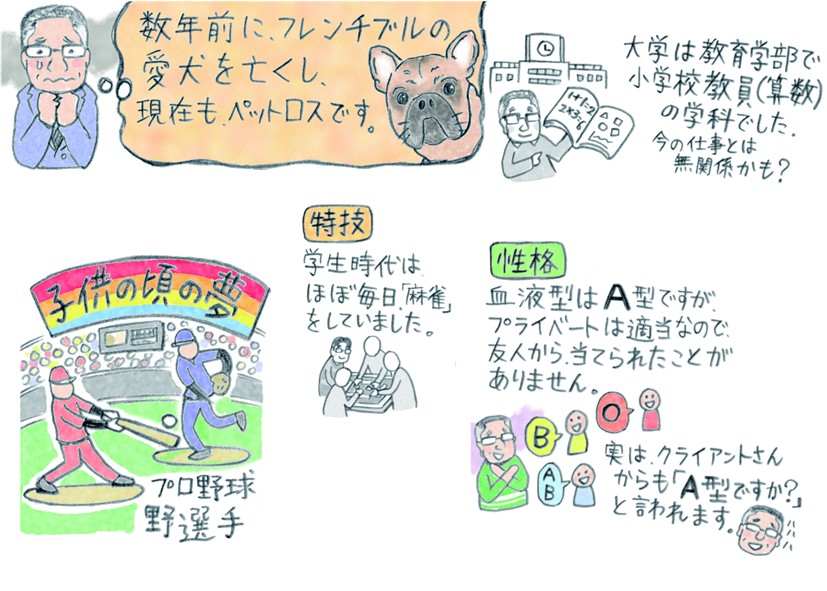 数年前に、フレンチブルの
愛犬を亡くし、
現在も、ペットロスです。
大学は教育学部で
小学校教員(算数)
の学科でした。
今の仕事とは
無関係かも?
1+1=2
2×3=6
子供の頃の夢
プロ野球
野選手
特技
学生時代は、
ほぼ毎日、「麻雀」
をしていました。
性格
血液型はA型ですが、
プライベートは適当なので、
友人から、当てられたことが
ありません。
B
O
A
B
実は、クライアントさん
からも「A型ですか?」
と言われます。